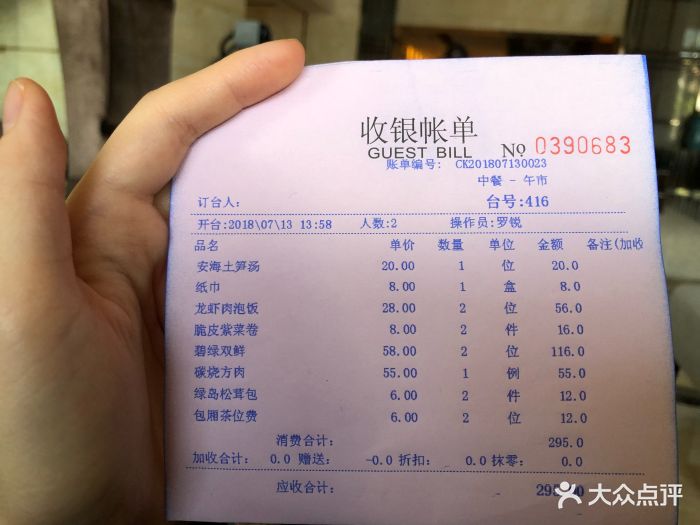 收银帐单
GUEST BILL No 0390683
账单编号: CK201807130023
中餐 - 午市
订台人: 台号:416
开台:2018\07\13 13:58 人数:2 操作员:罗锐
品名 单价 数量 单位 金额 备注(加收
安海土笋汤 20.00 1 位 20.0
纸巾 8.00 1 盒 8.0
龙虾肉泡饭 28.00 2 位 56.0
脆皮紫菜卷 8.00 2 件 16.0
碧绿双鲜 58.00 2 位 116.0
碳烧方肉 55.00 1 例 55.0
绿岛松茸包 6.00 2 件 12.0
包厢茶位费 6.00 2 位 12.0
消费合计: 295.0
加收合计: 0.0 赠送: -0.0 折扣: 0.0 抹零: 0.0
应收合计: 295.0
大众点评